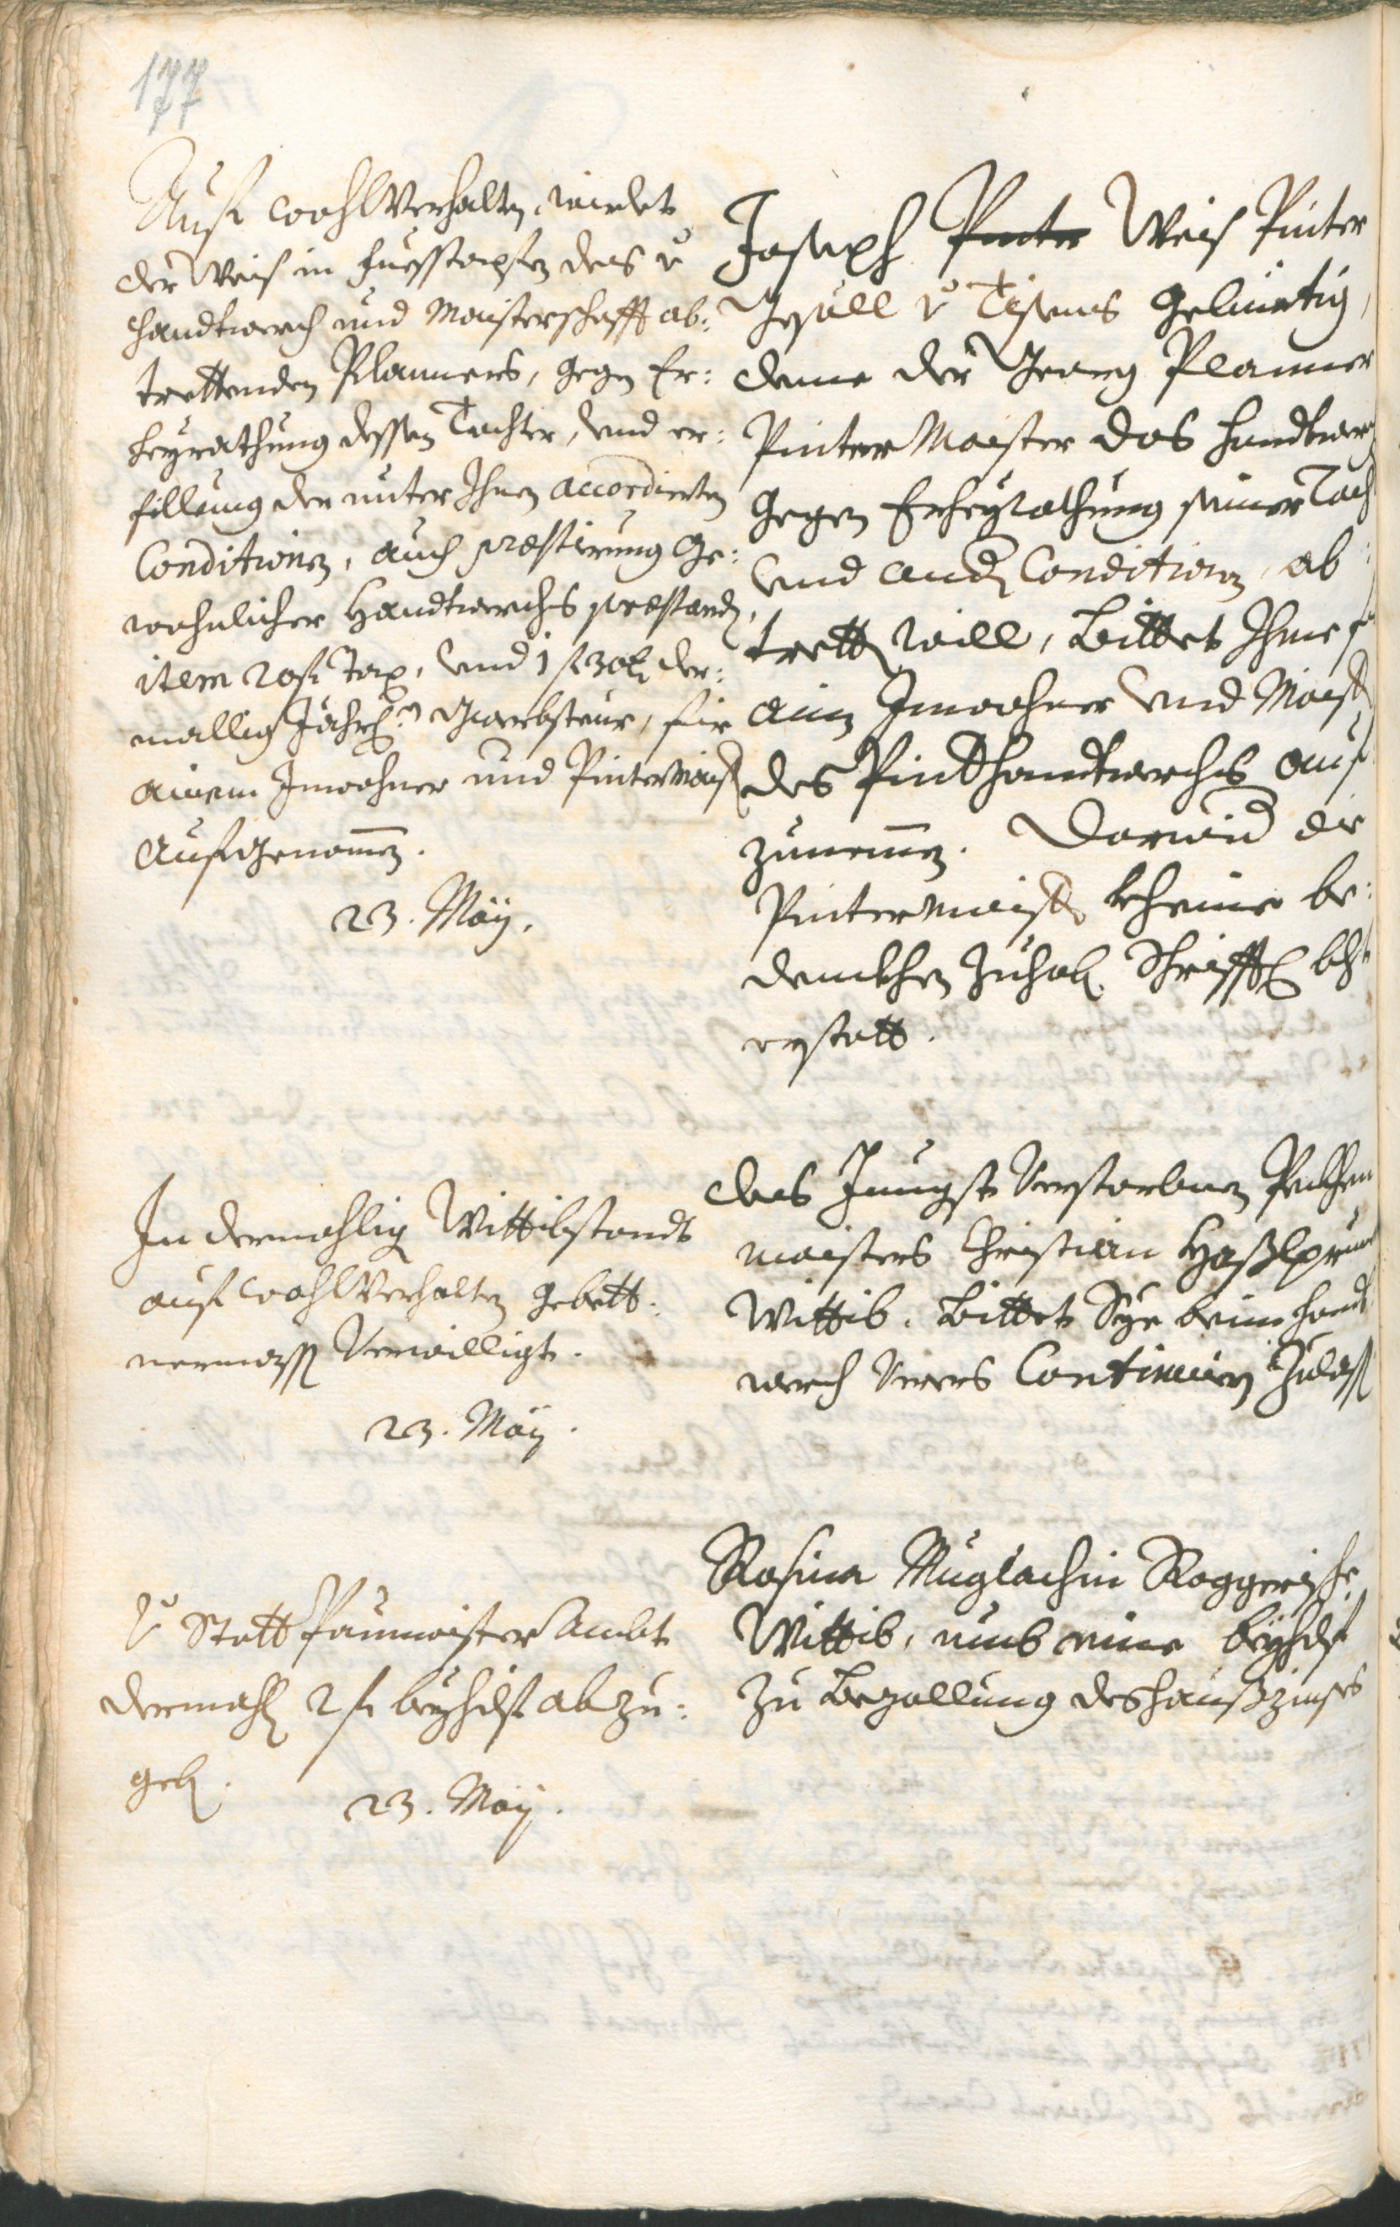 177
Auf wohlVerhalten, wirdet
der Weis in fuesstapfen des v
handtwerch und Maisterschafft ab:
trettenden Planners, gegen Er:
heyrathung dessen Tochter, und er:
fillung der unter Ihnen accordierten
Conditionen, auch praestierung ge:
wohnlicher Handtwerchs praestandn,
item 20 f Tax, und 1 f 30 kr der:
mallig Jährl. Gwerbsteur, fir
ainem Inwohner und Pintermaistr
aufgenommen.
23. May.
Joseph Pinter Weis Pinter
Gsöll v Tisens gebürtig,
deme der Georg Planner
Pinter Maister das handtwerch
gegen Erheyrathung seiner Toch
und andern Conditionen, ab:
tretten will, bittet Ihne f
ainen Inwohner und Maistr
des Pindthandtwerchs auf
zunemmen. Darwider die
Pintermaister kheine be:
denkhen zuhaben Schrifftl
erstatt.
In dermahlig Wittibstandt
auf wohlVerhalten gebett:
nermassen Verwilligt.
23. May.
des Jüngst Verstorbnen
maisters Christian Haßlprun
Wittib. Bittet Sye beim handt
werch Verers Continuiren zulassen
V Statt Paumaister Ambt
dermahl 2 f beyhilf abzu:
geben.
23. May.
Rosina Muglachin Roggerische
Wittib, umb eine beyhilf
zu Bezallung des haußzinses